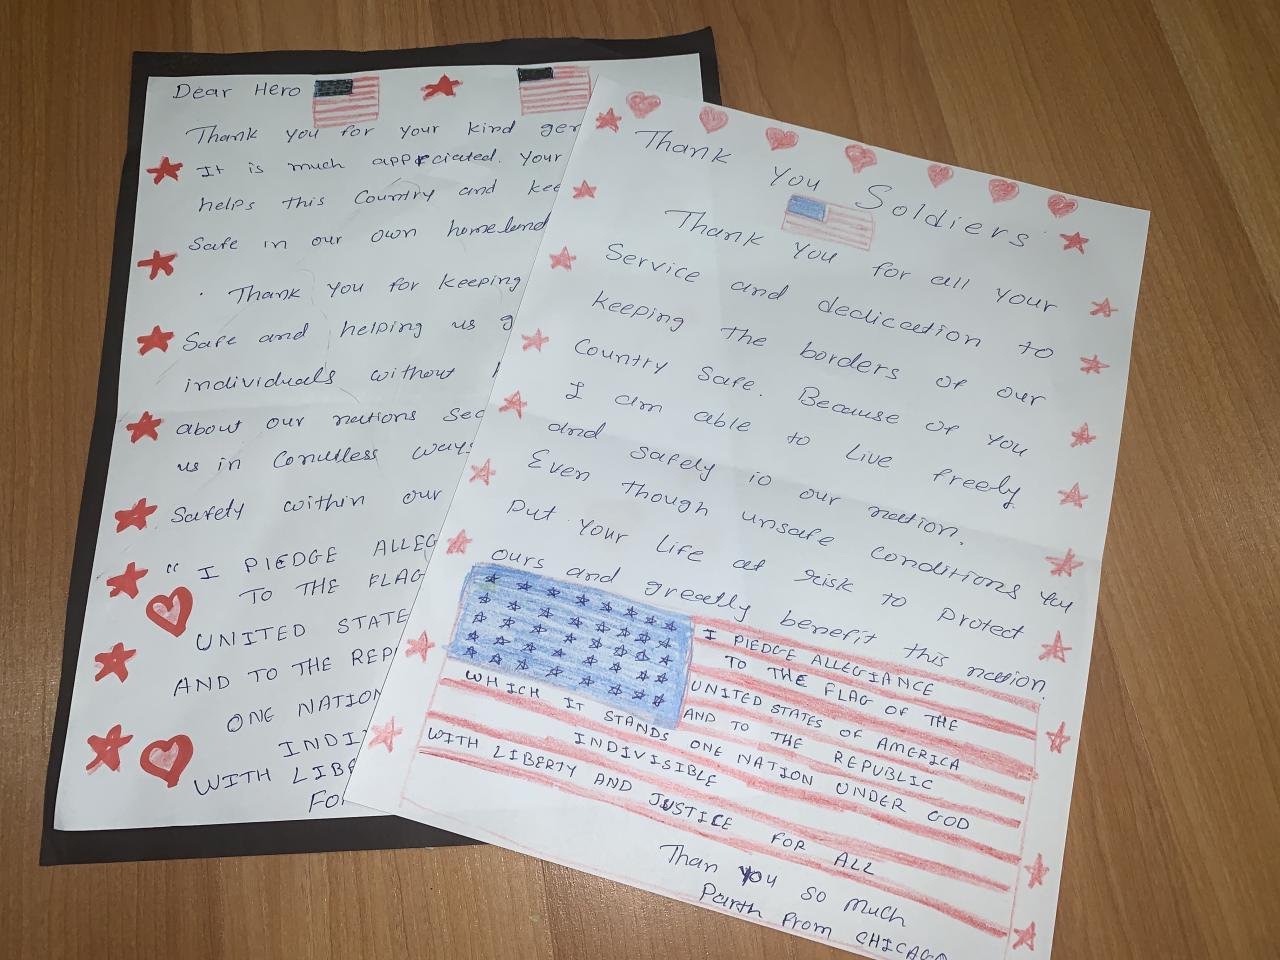 Dear Hero
Thank you for your kind ger
It is much appreciated. Your
helps this Country and kee
Safe in our own homeland
Thank you for keeping
Safe and helping us g
individuals without
about our nations Sec
us in Conutless ways
Safety within our
" I PlEDGE ALLEG
TO THE FLAG
UNITED STATE
AND TO THE REP
ONE NATION
INDI
WITH LIBE
FO
Thank you Soldiers
Thank you for all your
Service and dedication to
keeping the borders of our
Country Safe. Because of you
I am able to Live freely
and safely in our nation.
Even though unsafe conditions you
put your life at risk to protect
ours and greatly benefit this nation.
I PlEDGE ALLEGIANCE
TO THE FLAG OF THE
UNITED STATES OF AMERICA
AND TO THE REPUBLIC
WHICH IT STANDS ONE NATION UNDER GOD
INDIVISIBLE
WITH LIBERTY AND JUSTICE FOR ALL
Than you so much
Parth from CHICAGO